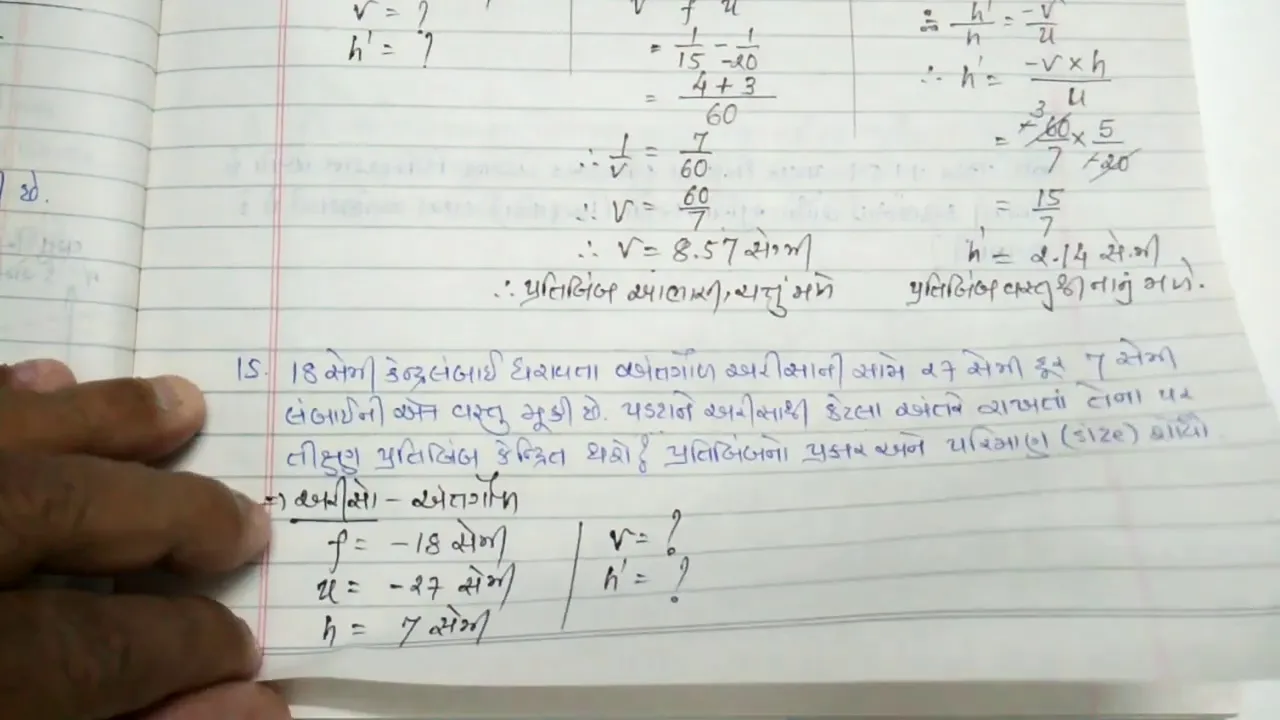 v = ?
h' = ?
v f u
= 1/15 - 1/-20
= 4 + 3 / 60
∴ 1/v = 7/60
∴ v = 60/7
∴ v = 8.57 સેમી
∴ પ્રતિબિંબ આભાસી, ચત્તું મળે
∴ h'/h = -v/u
∴ h' = -v × h / u
= -60/7 × 5/-20
3
= 15/7
h' = ૨.14 સે.મી
પ્રતિબિંબ વસ્તુથી નાનું મળે.
છે.
15. 18 સેમી કેન્દ્રલંબાઈ ધરાવતા અંતર્ગોળ અરીસાની સામે ૨7 સેમી દૂર 7 સેમી
લંબાઈની એક વસ્તુ મૂકી છે. પડદાને અરીસાથી કેટલા અંતરે રાખતાં તેના પર
તીક્ષ્ણ પ્રતિબિંબ કેન્દ્રિત થશે? પ્રતિબિંબનો પ્રકાર અને પરિમાણ (સાઈઝ) શોધો.
⇒ અરીસો - અંતર્ગોળ
f = -18 સેમી
u = -૨7 સેમી
h = 7 સેમી
v = ?
h' = ?